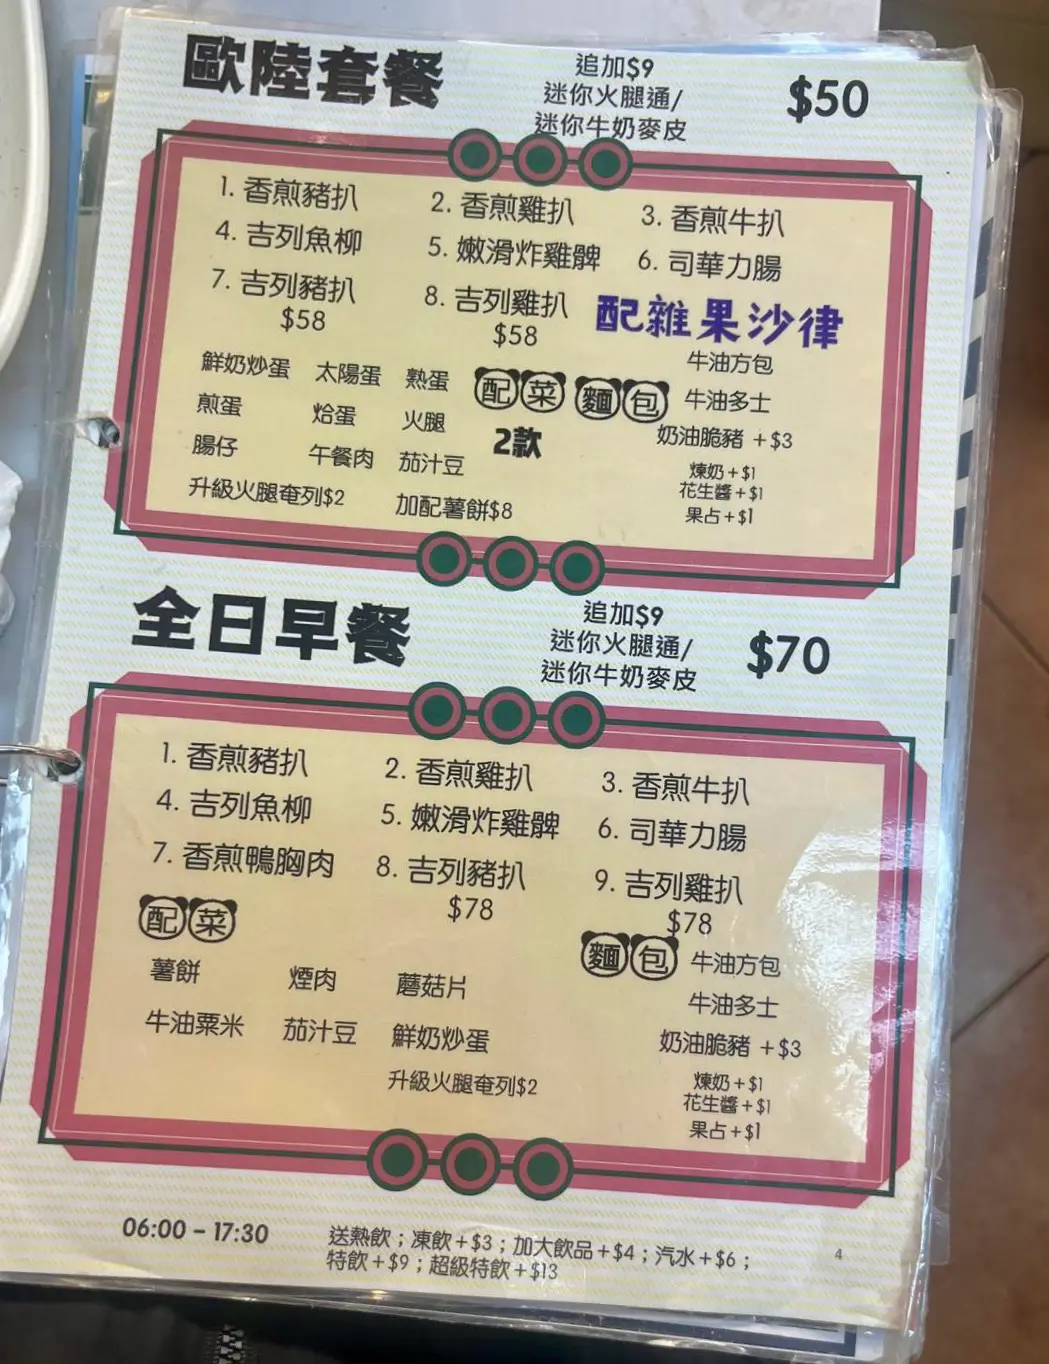 歐陸套餐
追加$9
迷你火腿通/
迷你牛奶麥皮
$50
1. 香煎豬扒 2. 香煎雞扒 3. 香煎牛扒
4. 吉列魚柳 5. 嫩滑炸雞髀 6. 司華力腸
7. 吉列豬扒 8. 吉列雞扒 配雜果沙律
$58 $58
鮮奶炒蛋 太陽蛋 熟蛋 配菜 麵包 牛油方包
煎蛋 烚蛋 火腿 2款 牛油多士
腸仔 午餐肉 茄汁豆 奶油脆豬 +$3
升級火腿奄列$2 加配薯餅$8
煉奶+$1
花生醬+$1
果占+$1
全日早餐
追加$9
迷你火腿通/
迷你牛奶麥皮
$70
1. 香煎豬扒 2. 香煎雞扒 3. 香煎牛扒
4. 吉列魚柳 5. 嫩滑炸雞髀 6. 司華力腸
7. 香煎鴨胸肉 8. 吉列豬扒 9. 吉列雞扒
$78 $78
配菜 麵包 牛油方包
薯餅 煙肉 蘑菇片 牛油多士
牛油粟米 茄汁豆 鮮奶炒蛋 奶油脆豬 +$3
升級火腿奄列$2
煉奶+$1
花生醬+$1
果占+$1
06:00 – 17:30
送熱飲；凍飲+$3；加大飲品+$4；汽水+$6；
特飲+$9；超級特飲+$13
4